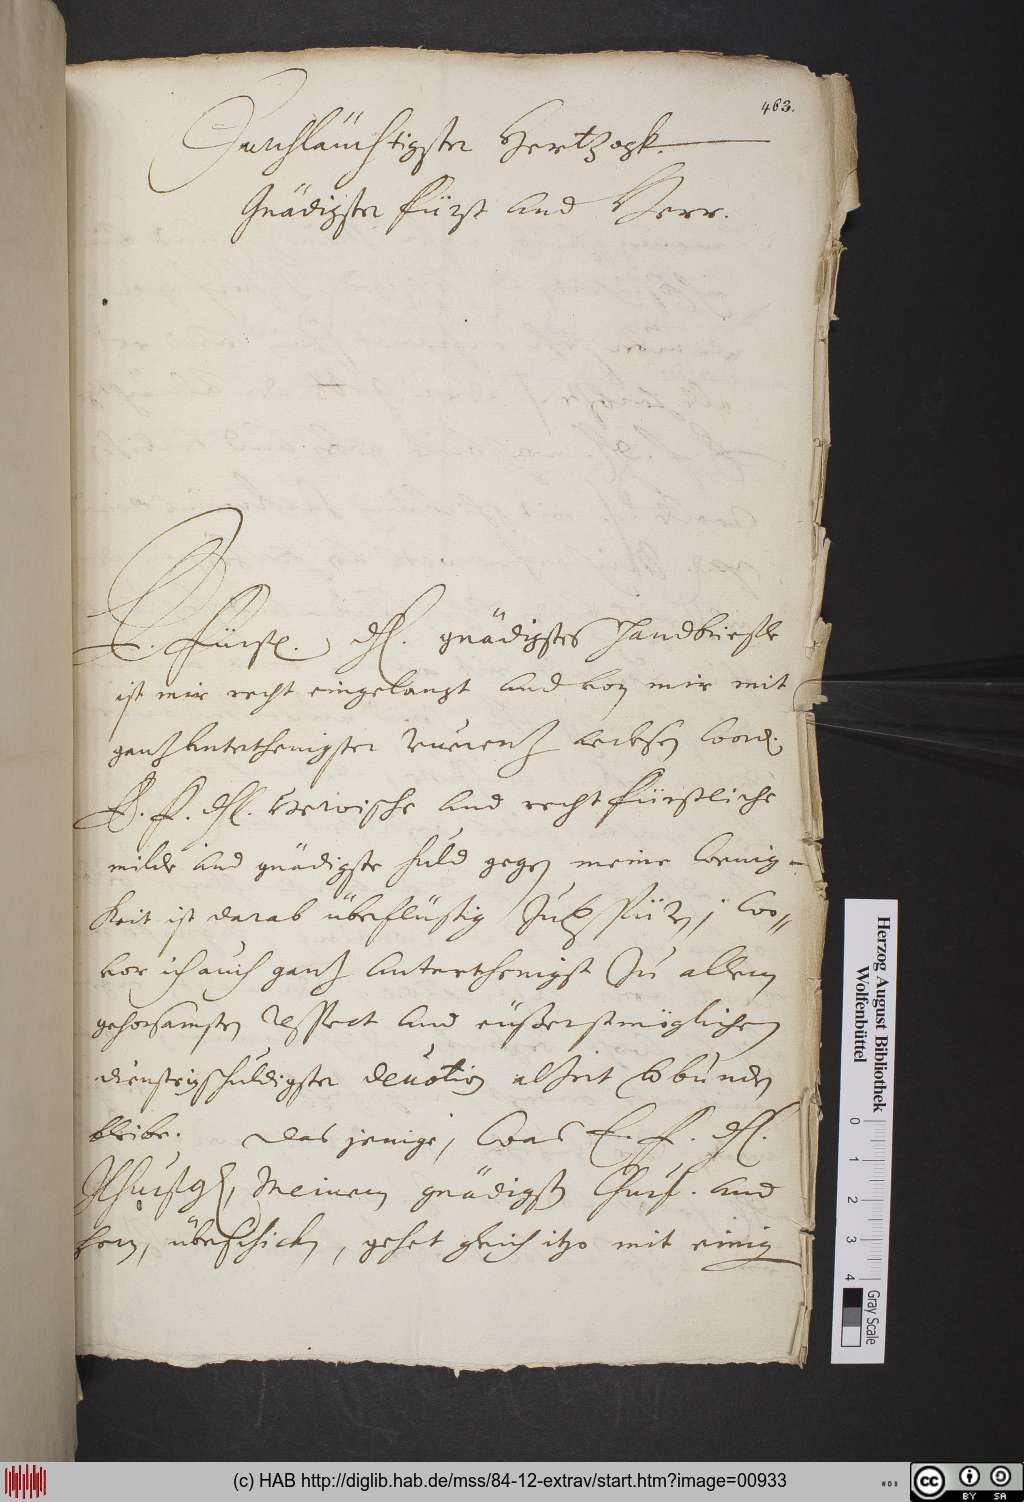 463.
Durchläuchtigster Hertzogk.
Gnädigster fürst und Herr.
E. fürstl. dhl. gnädigstes handbriefle
ist mir recht eingelangt und von mir mit
gantz unterthenigster reverentz worden.
E. f. dhl. heroische und recht fürstliche
milde und gnädigste huld gegen meine wenig-
keit ist darab überflüssig zu spüren, wo-
vor ich auch gantz unterthenigst zu allem
gehorsamsten respect und eüßerstmöglichen
dienstschuldigster devotion alzeit verbunden
bleibe. Das jenige, was E. f. dhl.
Meinem gnädigsten Churf. und
hern, überschicken, gehet gleich itzo mit einig
Herzog August Bibliothek
Wolfenbüttel
0 1 2 3 4
Gray Scale
(c) HAB http://diglib.hab.de/mss/84-12-extrav/start.htm?image=00933
cc BY SA